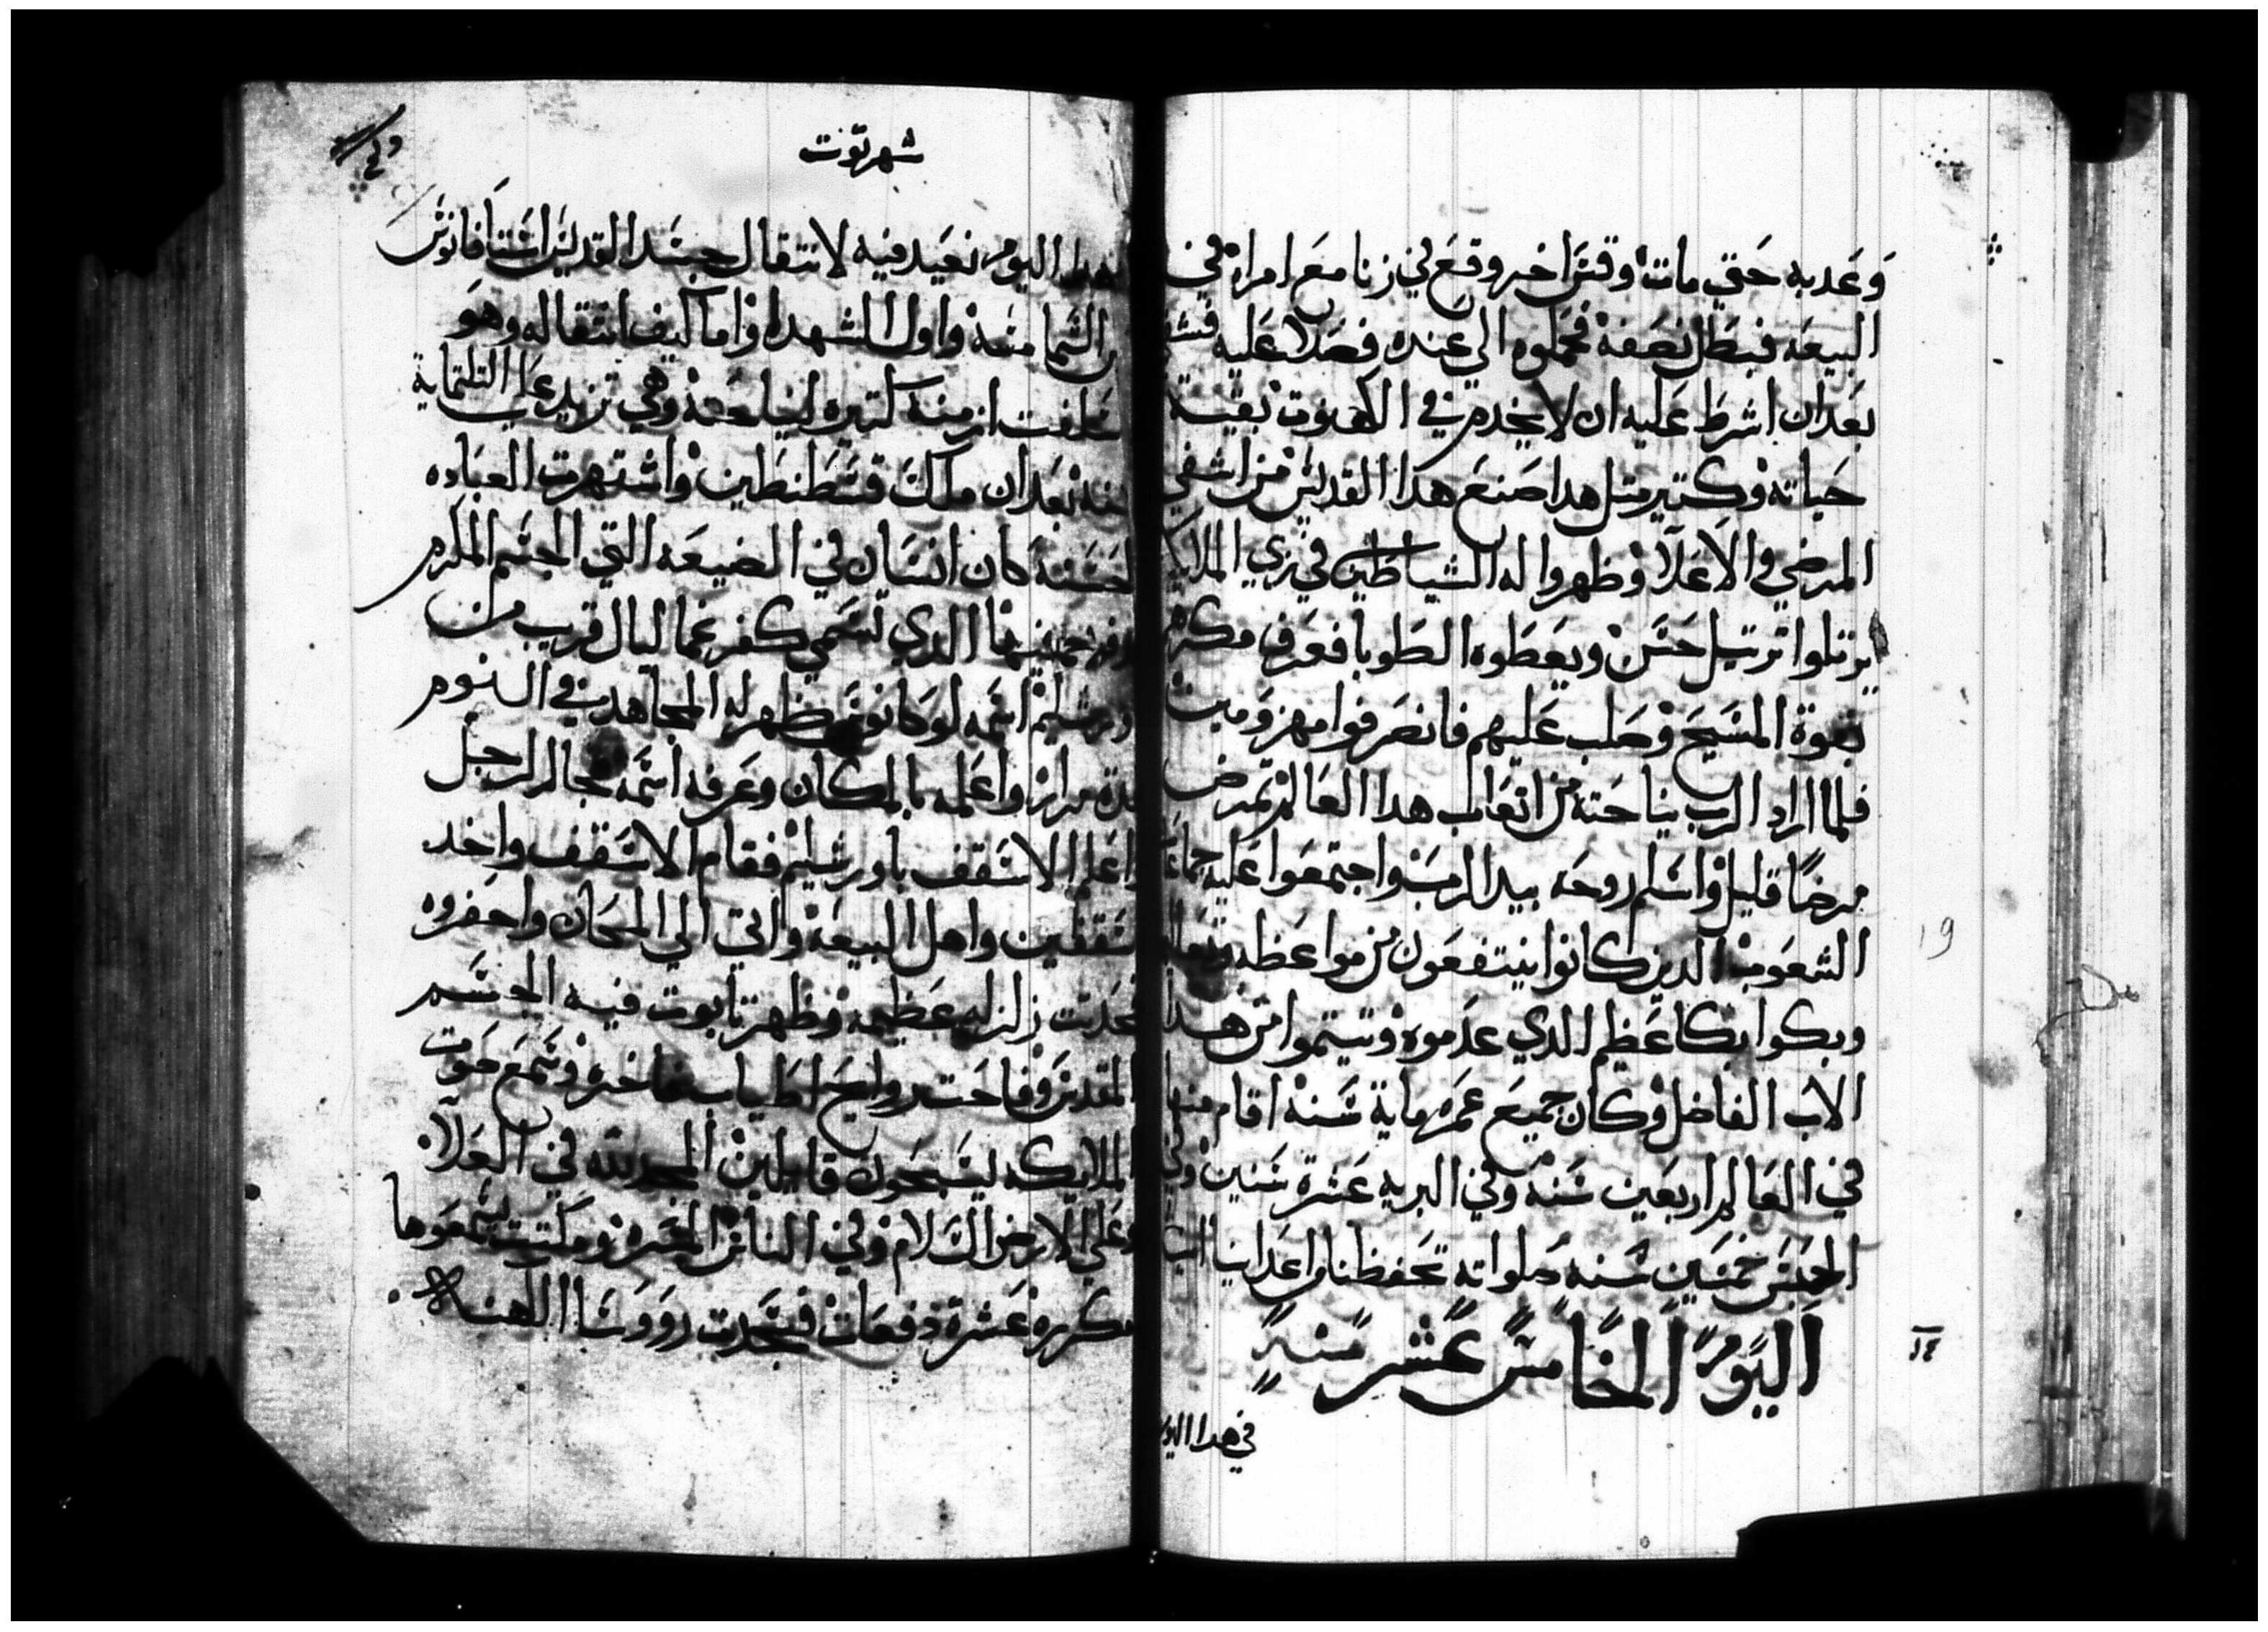 وعدبه حتي مات وقس اخر وقع في زنا مع امراه في
البيعه فبطل نصفه فحملوه الي عنده فصلا عليه فشفي
بعد ان اشرط عليه ان لا يخدم في الكهنوت بقيت
حياته وكتير متل هدا صنع هدا القديس من اشفي
المرضي والاعلا وظهروا له الشياطين في زي الملايكه
يرتلوا ترتيل حسن ويعطوه الطوبا فعرف مكرهم
بقوة المسيح وصلب عليهم فانصرفوا مهزومين
فلما اراد الرب نياحته من اتعاب هدا العالم تمرض
مرضًا قليل واسلم روحه بيد الرب واجتمعوا عليه جماعة
الشعوب الدين كانوا ينتفعون من مواعظه
وبكوا بكا عظيم الدي عدموه وتيتموا من هدا
الاب الفاضل وكان جميع عمره ماية سنه اقام منها
في العالم اربعين سنه وفي البريه عشرة سنين وفي
الحبس خمسين سنه صلواته تحفظنا من اعداينا
اليوم الخامس عشر منه
في هدا اليوم
19
١٤
شهر توت
هدا اليوم نعيد فيه لانتقال جسد القديس استافانوس
الشمامسه واول الشهدا واما كيف انتقاله وهو
سلفت ازمنه كتيره لنياحته وهي تزيد على التلتماية
سنه بعد ان ملك قسطنطين واشتهرت العباده
الحسنه كان انسان في الضيعه التي الجسم المكرم
فيها الدي تسمي كفر غماليال قريب من
اورشليم اسمه لوكانوس ظهر له المجاهد في النوم
عدة مرار واعلمه بالمكان وعرفه اسمه فجا الرجل
واعلم الاسقف باورشليم فقام الاسقف واخد
اسقفين واهل البيعه واتي الي المكان واحفروه
فحدت زلزله عظيمه وظهر تابوت فيه الجسم
المقدس وفاحت روايح اطياب فاخره وسمع صوت
الملايكه يسبحون قايلين المجد لله في العلا
وعلي الارض السلام وفي الناس المسره ومكتت يسمعوها
مكرره عشرة دفعات فسجدت رووسا الكهنه